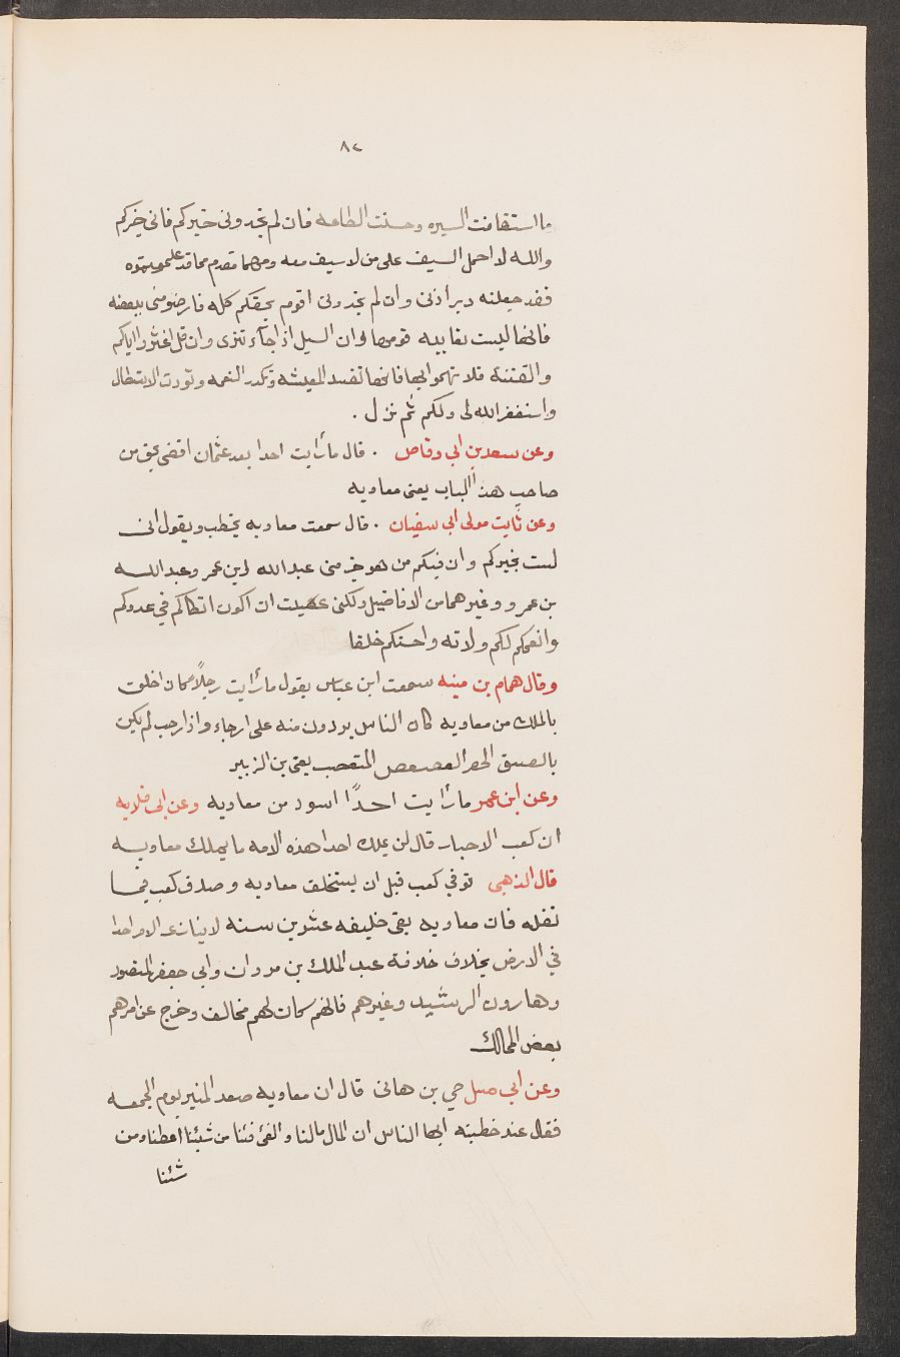 ٨٢
ما استقامت السيره وحسنت الطاعه فان لم تجدونى خيركم فانى خيركم
والله لا احمل السيف على من لا سيف معه ومهما تقدم مما قد علمتموه
فقد جعلته دبر اذنى وان لم تجدونى اقوم بحقكم كله فارضو منى ببعضه
فانها ليست بقايبه قوبها وان السيل اذا جآء تترى وان قل اغثى واياكم
والفتنة فلا تهموا بها فانها تفسد المعيشه وتكدر النعمه وتورث الاستطال
واستغفر الله لى ولكم ثم نزل .
وعن سعد بن ابي وقاص . قال ما رأيت احدا بعد عثمان اقضى بحق من
صاحب هذا الباب يعنى معاويه
وعن ثابت مولى ابى سفيان . قال سمعت معاويه يخطب ويقول انى
لست بخيركم وان فيكم من هو خير منى عبد الله ابن عمر وعبد الله
بن عمرو وغيرهما من الافاضل ولكنى عسيت ان اكون انكاكم في عدوكم
وانعمكم لكم ولاته واحسنكم خلقا
وقال همام بن منبه سمعت ابن عباس يقول ما رأيت رجلاً كان اخلق
بالملك من معاويه كان الناس يردون منه على ارجاء واد ارحب لم يكن
بالضيق الحصر العصعص المتعصب يعنى بن الزبير
وعن ابن عمر ما رأيت احدًا اسود من معاويه وعن ابى قلابه
ان كعب الاحبار قال لن يملك احدا هذه الامه ما يملك معاويه
قال الذهبى توفي كعب قبل ان يستخلف معاويه وصدق كعب فيما
نقله فان معاويه بقى خليفه عشرين سنه لا ينازعه الامر احدا
في الارض بخلاف خلافة عبد الملك بن مروان وابي جعفر المنصور
وهارون الرشيد وغيرهم فانهم كان لهم مخالف وخرج عن امرهم
بعض الممالك
وعن ابي حي بن هانى قال ان معاويه صعد المنبر يوم الجمعه
فقال عند خطبته ايها الناس ان المال مالنا والفئ فئنا من شئنا اعطنا ومن
شئنا